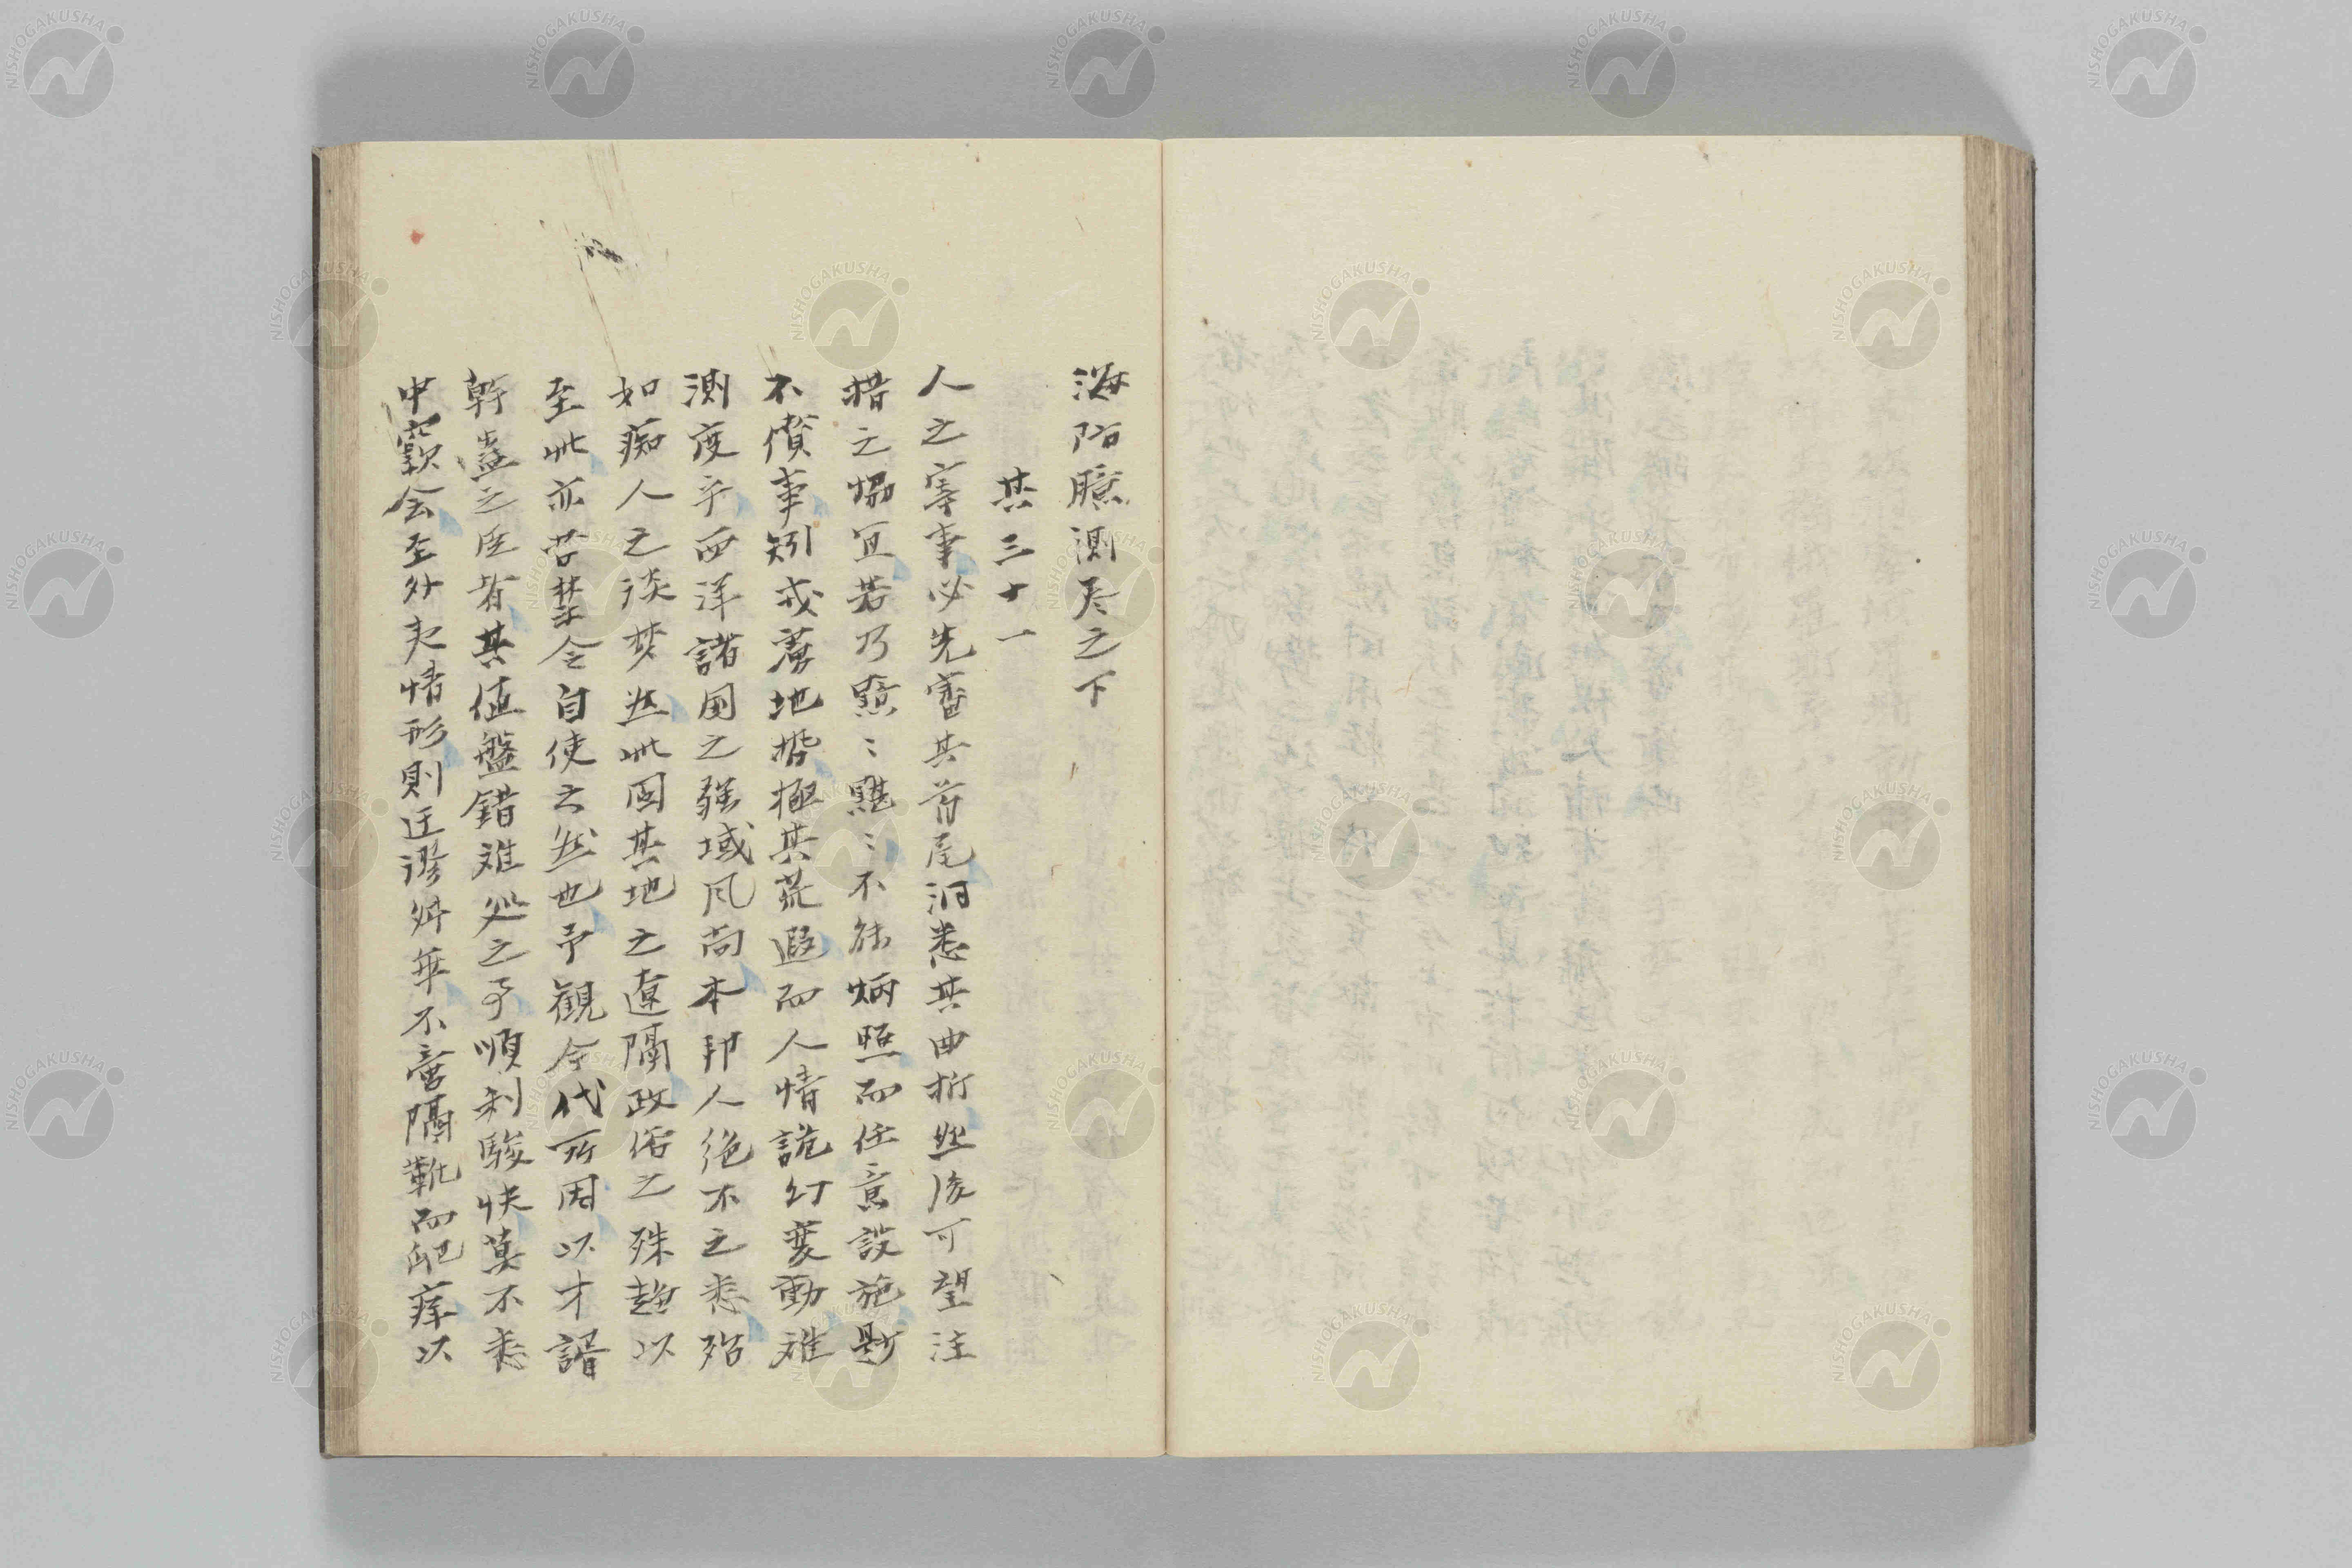 海防臆測巻之下
其三十一
人之宰事必先審其首尾洞悉其曲折然後可望注
措之協宜若乃黯々黮々不能炳照而任意設施尠
不僨事矧戎虜地揩極其荒遐而人情詭幻変動難
測度乎西洋諸国之強域風尚本邦人絶不之悉殆
如痴人之談夢然此固其地之遼隔政俗之殊趨以
至此亦苦禁令自使之然也予観今代所因以才諝
幹蠱之臣者其値盤錯難処之予順利駿快莫不悉
中窾会至外夷情形則迂謬舛年不啻隔靴而爬痒以
NISHOGAKUSHA